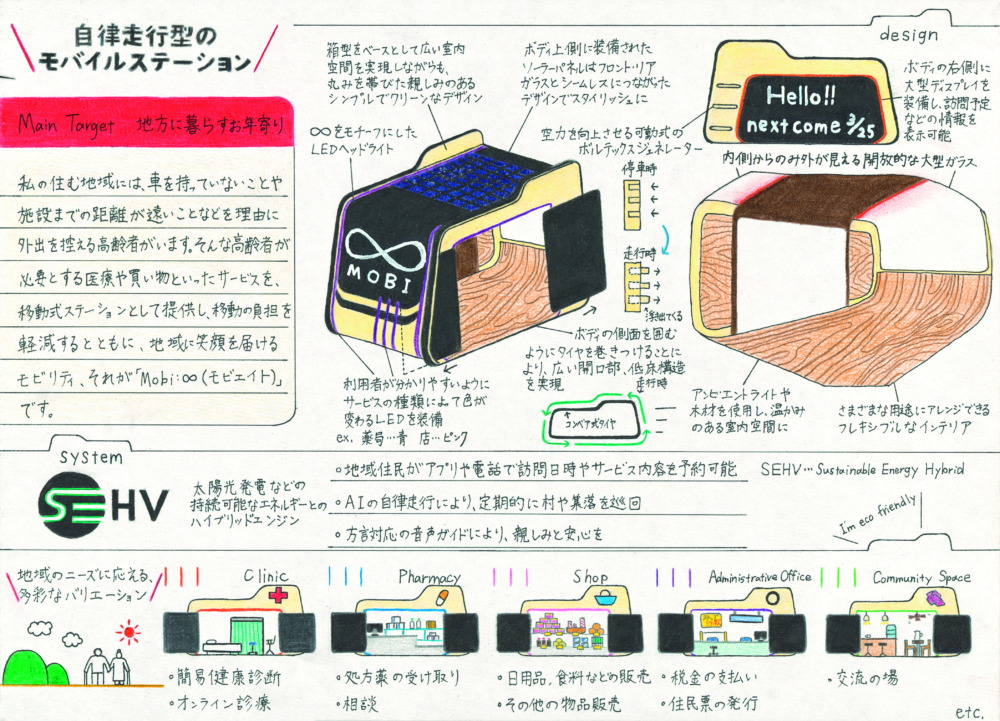 自律走行型の
モバイルステーション
Main Target 地方に暮らすお年寄り
私の住む地域には、車を持っていないことや
施設までの距離が遠いことなどを理由に
外出を控える高齢者がいます。そんな高齢者が
必要とする医療や買い物といったサービスを、
移動式ステーションとして提供し、移動の負担を
軽減するとともに、地域に笑顔を届ける
モビリティ、それが「Mobi:∞(モビエイト)」
です。
箱型をベースとして広い室内
空間を実現しながらも、
丸みを帯びた親しみのある
シンプルでクリーンなデザイン
∞をモチーフにした
LEDヘッドライト
ボディ上側に装備された
ソーラーパネルはフロント・リア
ガラスとシームレスにつながった
デザインでスタイリッシュに
空力を向上させる可動式の
ボルテックスジェネレーター
停車時
走行時
浮き出てくる
MOBI
ボディの側面を囲む
ようにタイヤを巻きつけることに
より、広い開口部、低床構造
を実現
走行時
コンベア式タイヤ
利用者が分かりやすいように
サービスの種類によって色が
変わるLEDを装備
ex. 薬局…青 店…ピンク
design
Hello!!
next come 3/25
ボディの右側に
大型ディスプレイを
装備し、訪問予定
などの情報を
表示可能
内側からのみ外が見える開放的な大型ガラス
アンビエントライトや
木材を使用し、温かみ
のある室内空間に
さまざまな用途にアレンジできる
フレキシブルなインテリア
system
SEHV
太陽光発電などの
持続可能なエネルギーとの
ハイブリッドエンジン
•地域住民がアプリや電話で訪問日時やサービス内容を予約可能
•AIの自律走行により、定期的に村や集落を巡回
•方言対応の音声ガイドにより、親しみと安心を
SEHV…Sustainable Energy Hybrid
I'm eco friendly
地域のニーズに応える、
多彩なバリエーション
Clinic
•簡易健康診断
•オンライン診療
Pharmacy
•処方薬の受け取り
•相談
Shop
•日用品、食料などの販売
•その他の物品販売
Administrative Office
•税金の支払い
•住民票の発行
Community Space
•交流の場
etc.